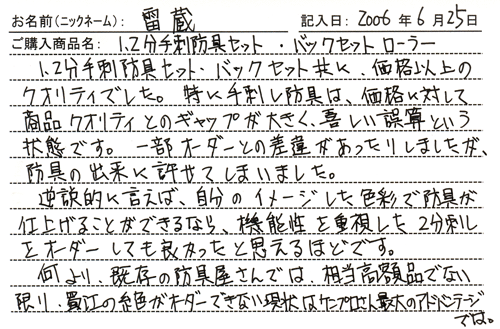 お名前(ニックネーム): 雷蔵 記入日: 2006 年 6 月 25 日
ご購入商品名: 1.2分手刺防具セット・バックセット ローラー
1.2分手刺防具セット・バックセット共に、価格以上の
クオリティでした。特に手刺し防具は、価格に対して
商品クオリティとのギャップが大きく、喜しい誤算という
状態です。一部オーダーとの差違があったりしましたが、
防具の出来に許せてしまいました。
逆説的に言えば、自分のイメージした色彩で防具が
仕上げることができるなら、機能性を重視した2分刺し
をオーダーしても良かったと思えるほどです。
何より、既存の防具屋さんでは、相当高額品でない
限り、蜀江の色がオーダーできない現状は最大のアドバンテージ
では。